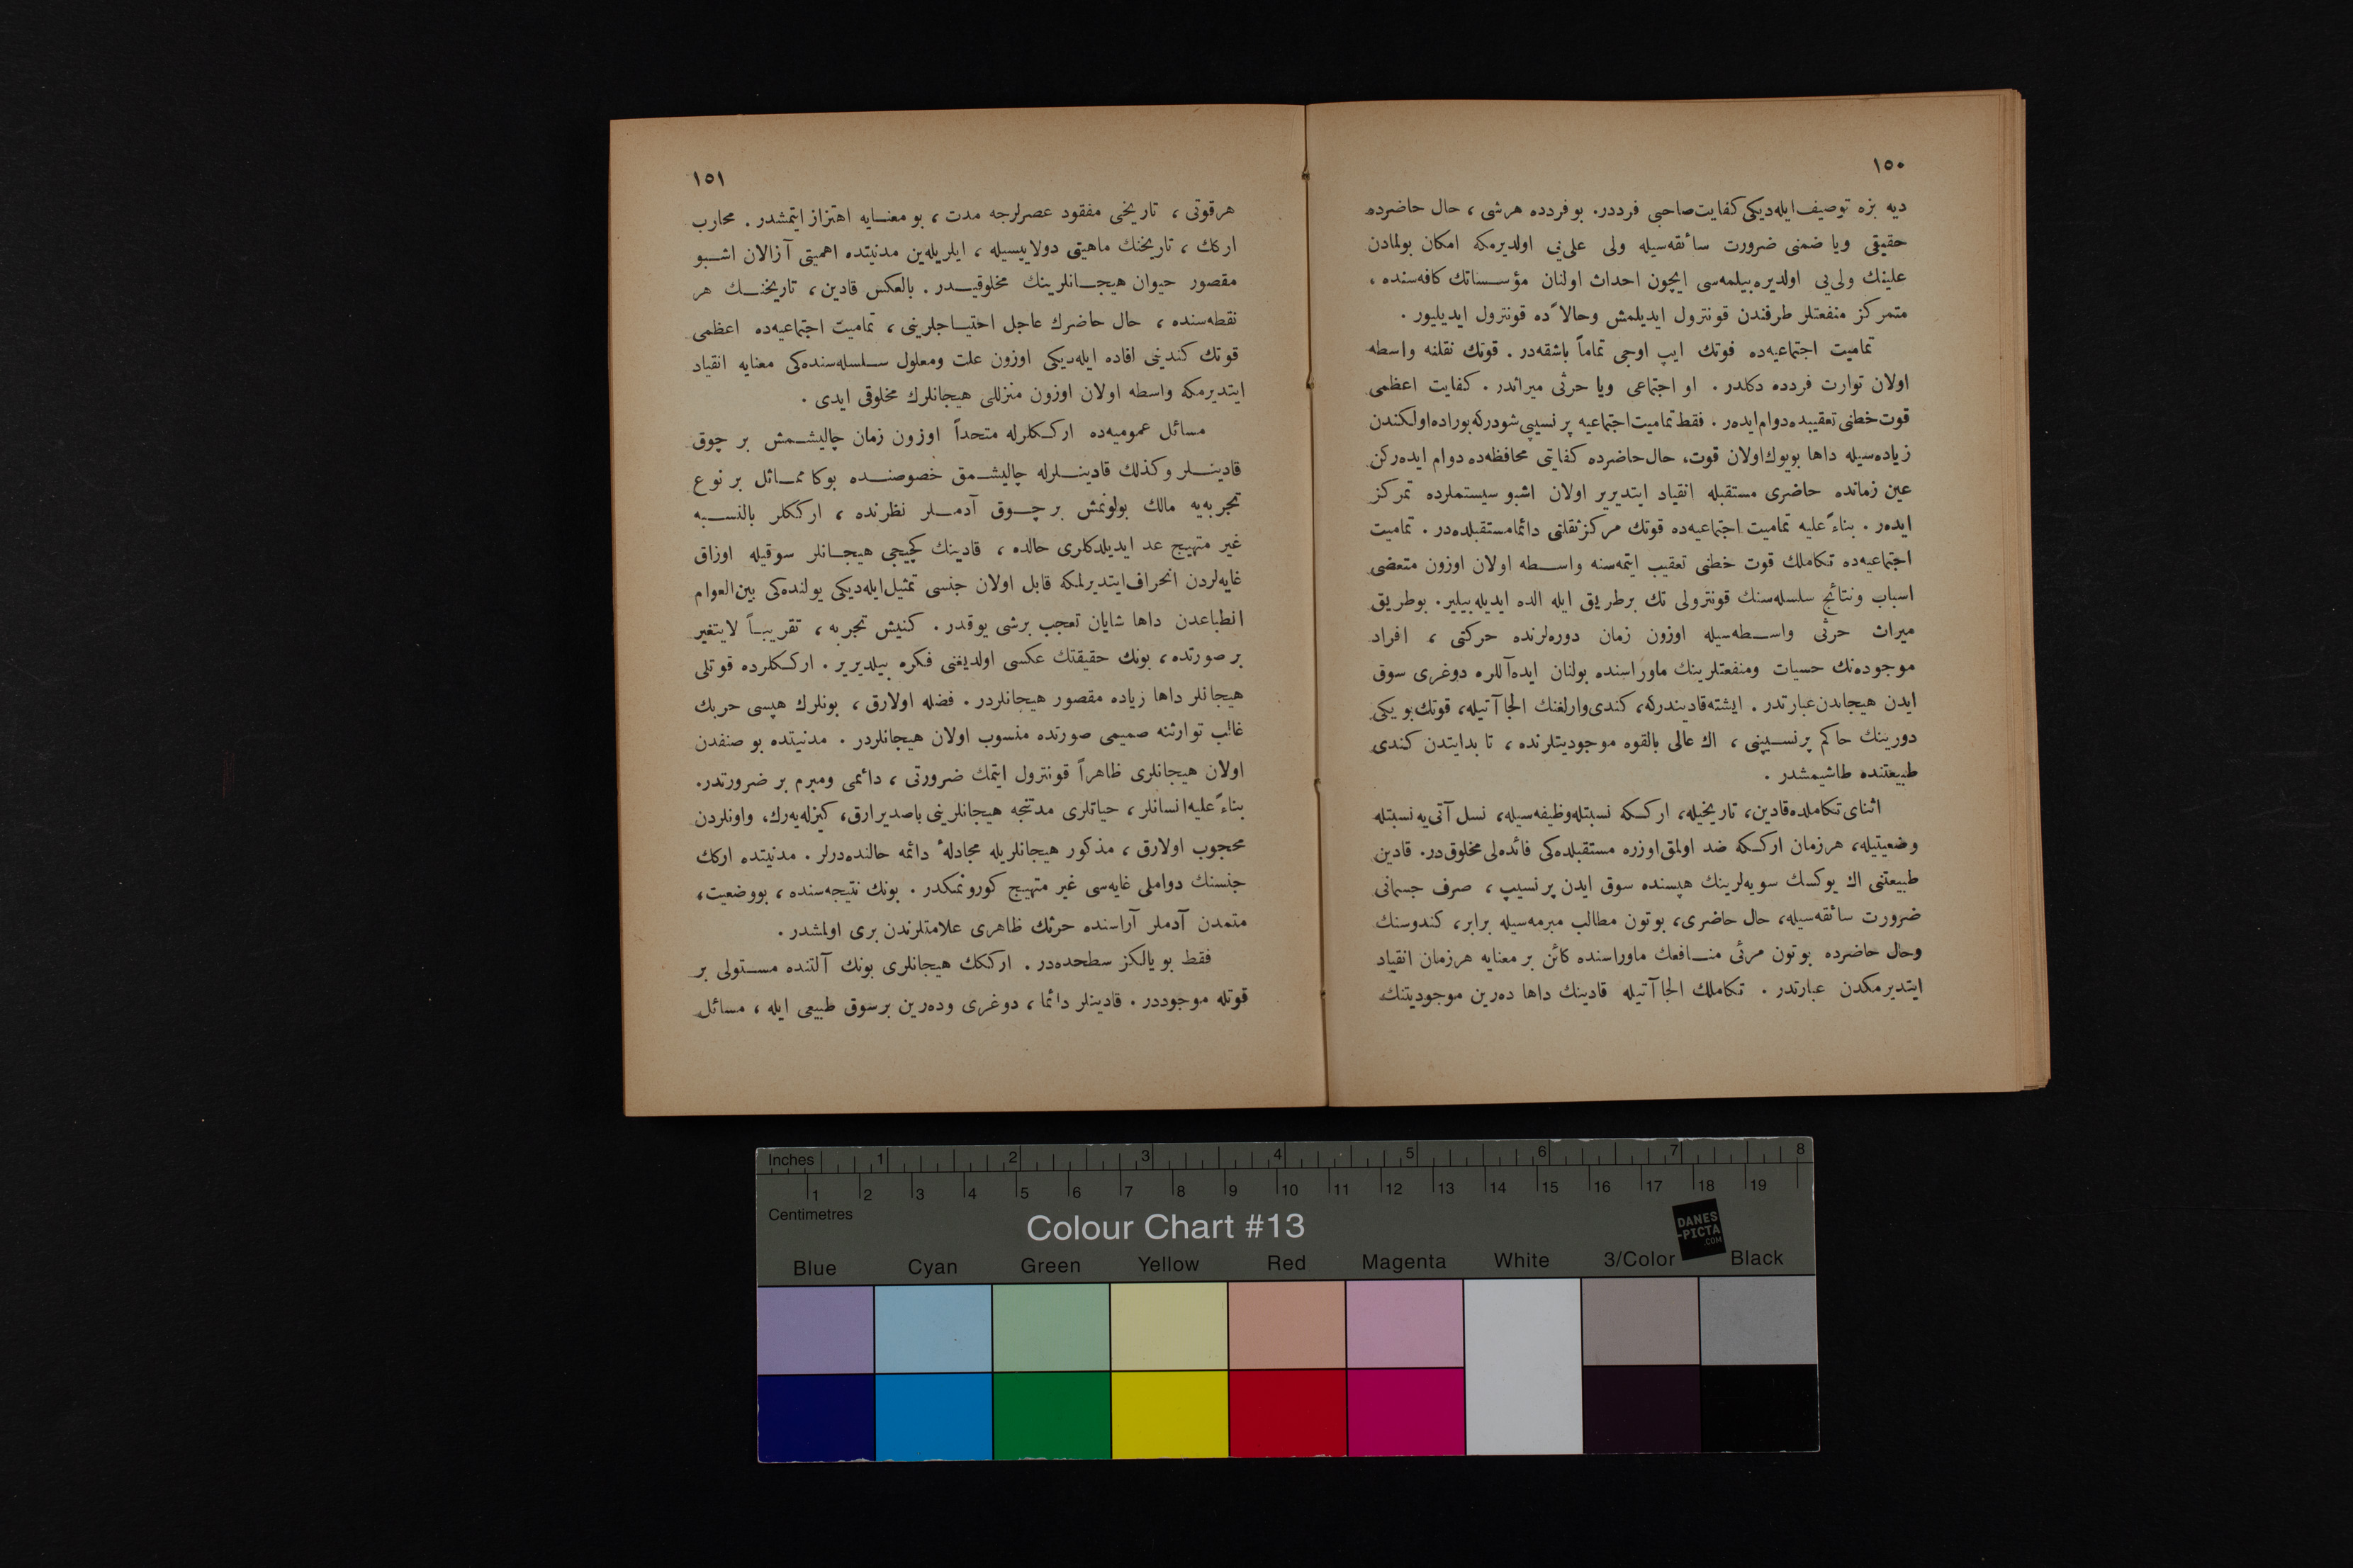 ١٥٠
دیه بزه توصیف ایله‌دیکی کفایت صاحبی فرددر. بو فردده هرشی ، حال حاضرده
حقیقی ویا ضمنی ضرورت سائقه‌سیله ولی علی‌یی اولدیرمکه امکان بولمادن
علینك ولی‌یی اولدیره بیلمه‌سی ایچون احداث اولنان مؤسساتك کافه‌سنده ،
متمرکز منفعتلر طرفندن قونترول ایدیلمش وحالاً ده قونترول ایدیلیور .
تمامیت اجتماعیه‌ده قوتك ایپ اوجی تماماً باشقه‌در . قوتك نقلنه واسطه
اولان توارث فردده دکلدر . او اجتماعی ویا حرثی میراثدر . کفایت اعظمی
قوت خطنی تعقیبده دوام ایده‌ر . فقط تمامیت اجتماعیه پرنسیپی شودرکه بوراده اولکندن
زیاده‌سیله داها بویوك اولان قوت، حال حاضرده کفایتی محافظه‌ده دوام ایده‌رکن
عین زمانده حاضری مستقبله انقیاد ایتدیریر اولان اشبو سیستملرده تمرکز
ایده‌ر . بناءً علیه تمامیت اجتماعیه‌ده قوتك مرکز ثقلتی دائما مستقبلده‌در . تمامیت
اجتماعیه‌ده تکاملك قوت خطنی تعقیب ایتمه‌سنه واسطه اولان اوزون متعضی
اسباب ونتائج سلسله‌سنك قونترولی تك برطریق ایله الده ایدیله بیلیر. بوطریق
میراث حرثی واسطه‌سیله اوزون زمان دوره‌لرنده حرکتی ، افراد
موجوده‌نك حسیات ومنفعتلرینك ماوراسنده بولنان ایده‌آللره دوغری سوق
ایدن هیجاندن عبارتدر . ایشته قادیندرکه، کندی وارلغنك الجاآتیله، قوتك بو یکی
دورینك حاکم پرنسیپنی ، اك عالی بالقوه موجودیتلرنده ، تا بدایتدن کندی
طبیعتنده طاشیمشدر .
اثنای تکاملده قادین، تاریخیله، ارککه نسبتله وظیفه‌سیله، نسل آتی‌یه نسبتله
وضعیتیله، هرزمان ارککه ضد اولمق اوزره مستقبلده‌کی فائده‌لی مخلوق در. قادین
طبیعتنی اك یوکسك سویه‌لرینك هپسنده سوق ایدن پرنسیپ ، صرف جسمانی
ضرورت سائقه‌سیله، حال حاضری، بوتون مطالب مبرمه‌سیله برابر، کندوسنك
وحال حاضرده بوتون مرئی منافعك ماوراسنده کائن بر معنایه هرزمان انقیاد
ایتدیرمکدن عبارتدر . تکاملك الجاآتیله قادینك داها ده‌رین موجودیتنك
١٥١
هرقوتی ، تاریخی مفقود عصرلرجه مدت ، بو معنایه اهتزاز ایتمشدر . محارب
ارکك ، تاریخنك ماهیتی دولاییسیله ، ایلریله‌ین مدنیتده اهمیتی آزالان اشبو
مقصور حیوان هیجانلرینك مخلوقیدر . بالعکس قادین ، تاریخنك هر
نقطه‌سنده ، حال حاضرك عاجل احتیاجلرینی ، تمامیت اجتماعیه‌ده اعظمی
قوتك کندینی افاده ایله‌دیکی اوزون علت ومعلول سلسله‌سنده‌کی معنایه انقیاد
ایتدیرمکه واسطه اولان اوزون منزللی هیجانلرك مخلوقی ایدی .
مسائل عمومیه‌ده ارککلرله متحداً اوزون زمان چالیشمش بر چوق
قادینلر وکذلك قادینلرله چالیشمق خصوصنده بوکا مماثل بر نوع
تجربه‌یه مالك بولونمش بر چوق آدملر نظرنده ، ارککلر بالنسبه
غیر متهیج عد ایدیلدکلری حالده ، قادینك کچیجی هیجانلر سوقیله اوزاق
غایه‌لردن انحراف ایتدیرلمکه قابل اولان جنسی تمثیل ایله‌دیکی یولنده‌کی بین‌العوام
انطباعدن داها شایان تعجب برشی یوقدر . کنیش تجربه ، تقریباً لایتغیر
بر صورتده ، بونك حقیقتك عکسی اولدیغنی فکره بیلدیریر . ارککلرده قوتلی
هیجانلر داها زیاده مقصور هیجانلردر . فضله اولارق ، بونلرك هپسی حربك
غالب توارثنه صمیمی صورتده منسوب اولان هیجانلردر . مدنیتده بو صنفدن
اولان هیجانلری ظاهراً قونترول ایتمك ضرورتی ، دائمی ومبرم بر ضرورتدر.
بناءً علیه انسانلر ، حیاتلری مدتنجه هیجانلرینی باصدیرارق، کیزله‌یه‌رك، واونلردن
محجوب اولارق ، مذکور هیجانلریله مجادلهٔ دائمه حالنده‌درلر . مدنیتده ارکك
جنسنك دواملی غایه‌سی غیر متهیج کورونمکدر . بونك نتیجه‌سنده ، بووضعیت،
متمدن آدملر آراسنده حرثك ظاهری علامتلرندن بری اولمشدر .
فقط بو یالکز سطحده‌در . ارککك هیجانلری بونك آلتنده مستولی بر
قوتله موجوددر . قادینلر دائما ، دوغری وده‌رین برسوق طبیعی ایله ، مسائل
Inches 1 2 3 4 5 6 7 8
1 2 3 4 5 6 7 8 9 10 11 12 13 14 15 16 17 18 19
Centimetres
Colour Chart #13
DANES
-PICTA
.COM
Blue Cyan Green Yellow Red Magenta White 3/Color Black